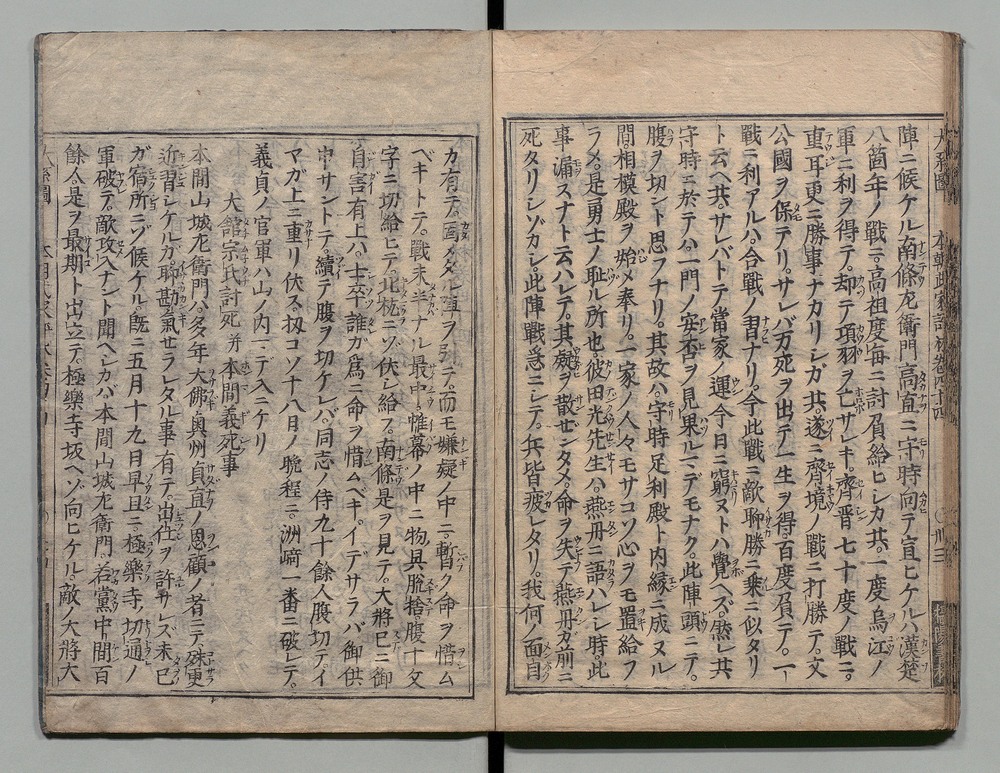 陣ニ候ケル南條左衛門高直ニ守時向テ宣ヒケルハ漢楚
八箇年ノ戰ニ高祖度毎ニ討負給ヒシカ共一度烏江ノ
軍ニ利ヲ得テ却テ項羽ヲ亡サレキ齊晋七十度ノ戰ニ
重耳更ニ勝事ナカリシガ共遂ニ齊境ノ戰ニ打勝テ文
公國ヲ保テリサレバ万死ヲ出テ一生ヲ得百度負テ一
戰ニ利アルハ合戰ノ習ナリ今此戰ニ敵聊勝ニ乘ニ似タリ
ト云ヘ共サレバトテ當家ノ運今日ニ窮ヌトハ覺ヘズ然レ共
守時ニ於テハ一門ノ安否ヲ見果ルニデモナク此陣頭ニテ
腹ヲ切ント思フナリ其故ハ守時足利殿ト内縁ニ成ヌル
間相模殿ヲ始メ奉リ一家ノ人々モサコソ心ヲモ置給フ
ラメ是勇士ノ恥ル所也彼田光先生ハ燕丹ニ語ハレシ時此
事漏スナト云ハレテ其疑ヲ散ゼンタメ命ヲ失テ燕丹ガ前ニ
死タリシゾカシ此陣戰急ニシテ兵皆疲レタリ我何ノ面目
カ有テ固メタル陣ヲ引テ而モ嫌疑ノ中ニ暫ク命ヲ惜ム
ベキトテ戰未半ナル最中帷幕ノ中ニ物具脱捨腹十文
字ニ切給ヒテ北枕ニゾ伏シ給フ南條是ヲ見テ大將已ニ御
自害有上ハ士卒誰ガ爲ニ命ヲ惜ムベキイデサラバ御供
申サントテ續テ腹ヲ切ケレバ同志ノ侍九十餘人腹切テイ
マガ上ニ重リ伏ス扨コソ十八日ノ晩程ニ洲﨑一番ニ破レテ
義貞ノ官軍ハ山ノ内ニテ入ニケリ
大舘宗氏討死并本間義死事
本間山城左衛門ハ多年大佛奥州貞直ノ恩顧ノ者ニテ殊更
近習シケルガ聊勘氣セラレタル事有テ出仕ヲ許サレズ未己
ガ宿所ニゾ候ケル既ニ五月十九日早旦ニ極樂寺ノ切通ノ
軍破テ敵攻入ナント聞ヘシカバ本間山城左衛門若黨中間百
餘人是ヲ最期ト出立テ極樂寺坂ヘゾ向ヒケル敵ノ大將大